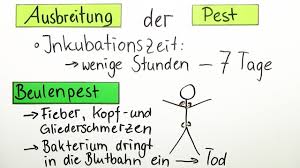 Ausbreitung der Pest
• Inkubationszeit:
→ wenige Stunden – 7 Tage
Beulenpest
→ Fieber, Kopf- und
Gliederschmerzen
→ Bakterium dringt
in die Blutbahn ein → Tod